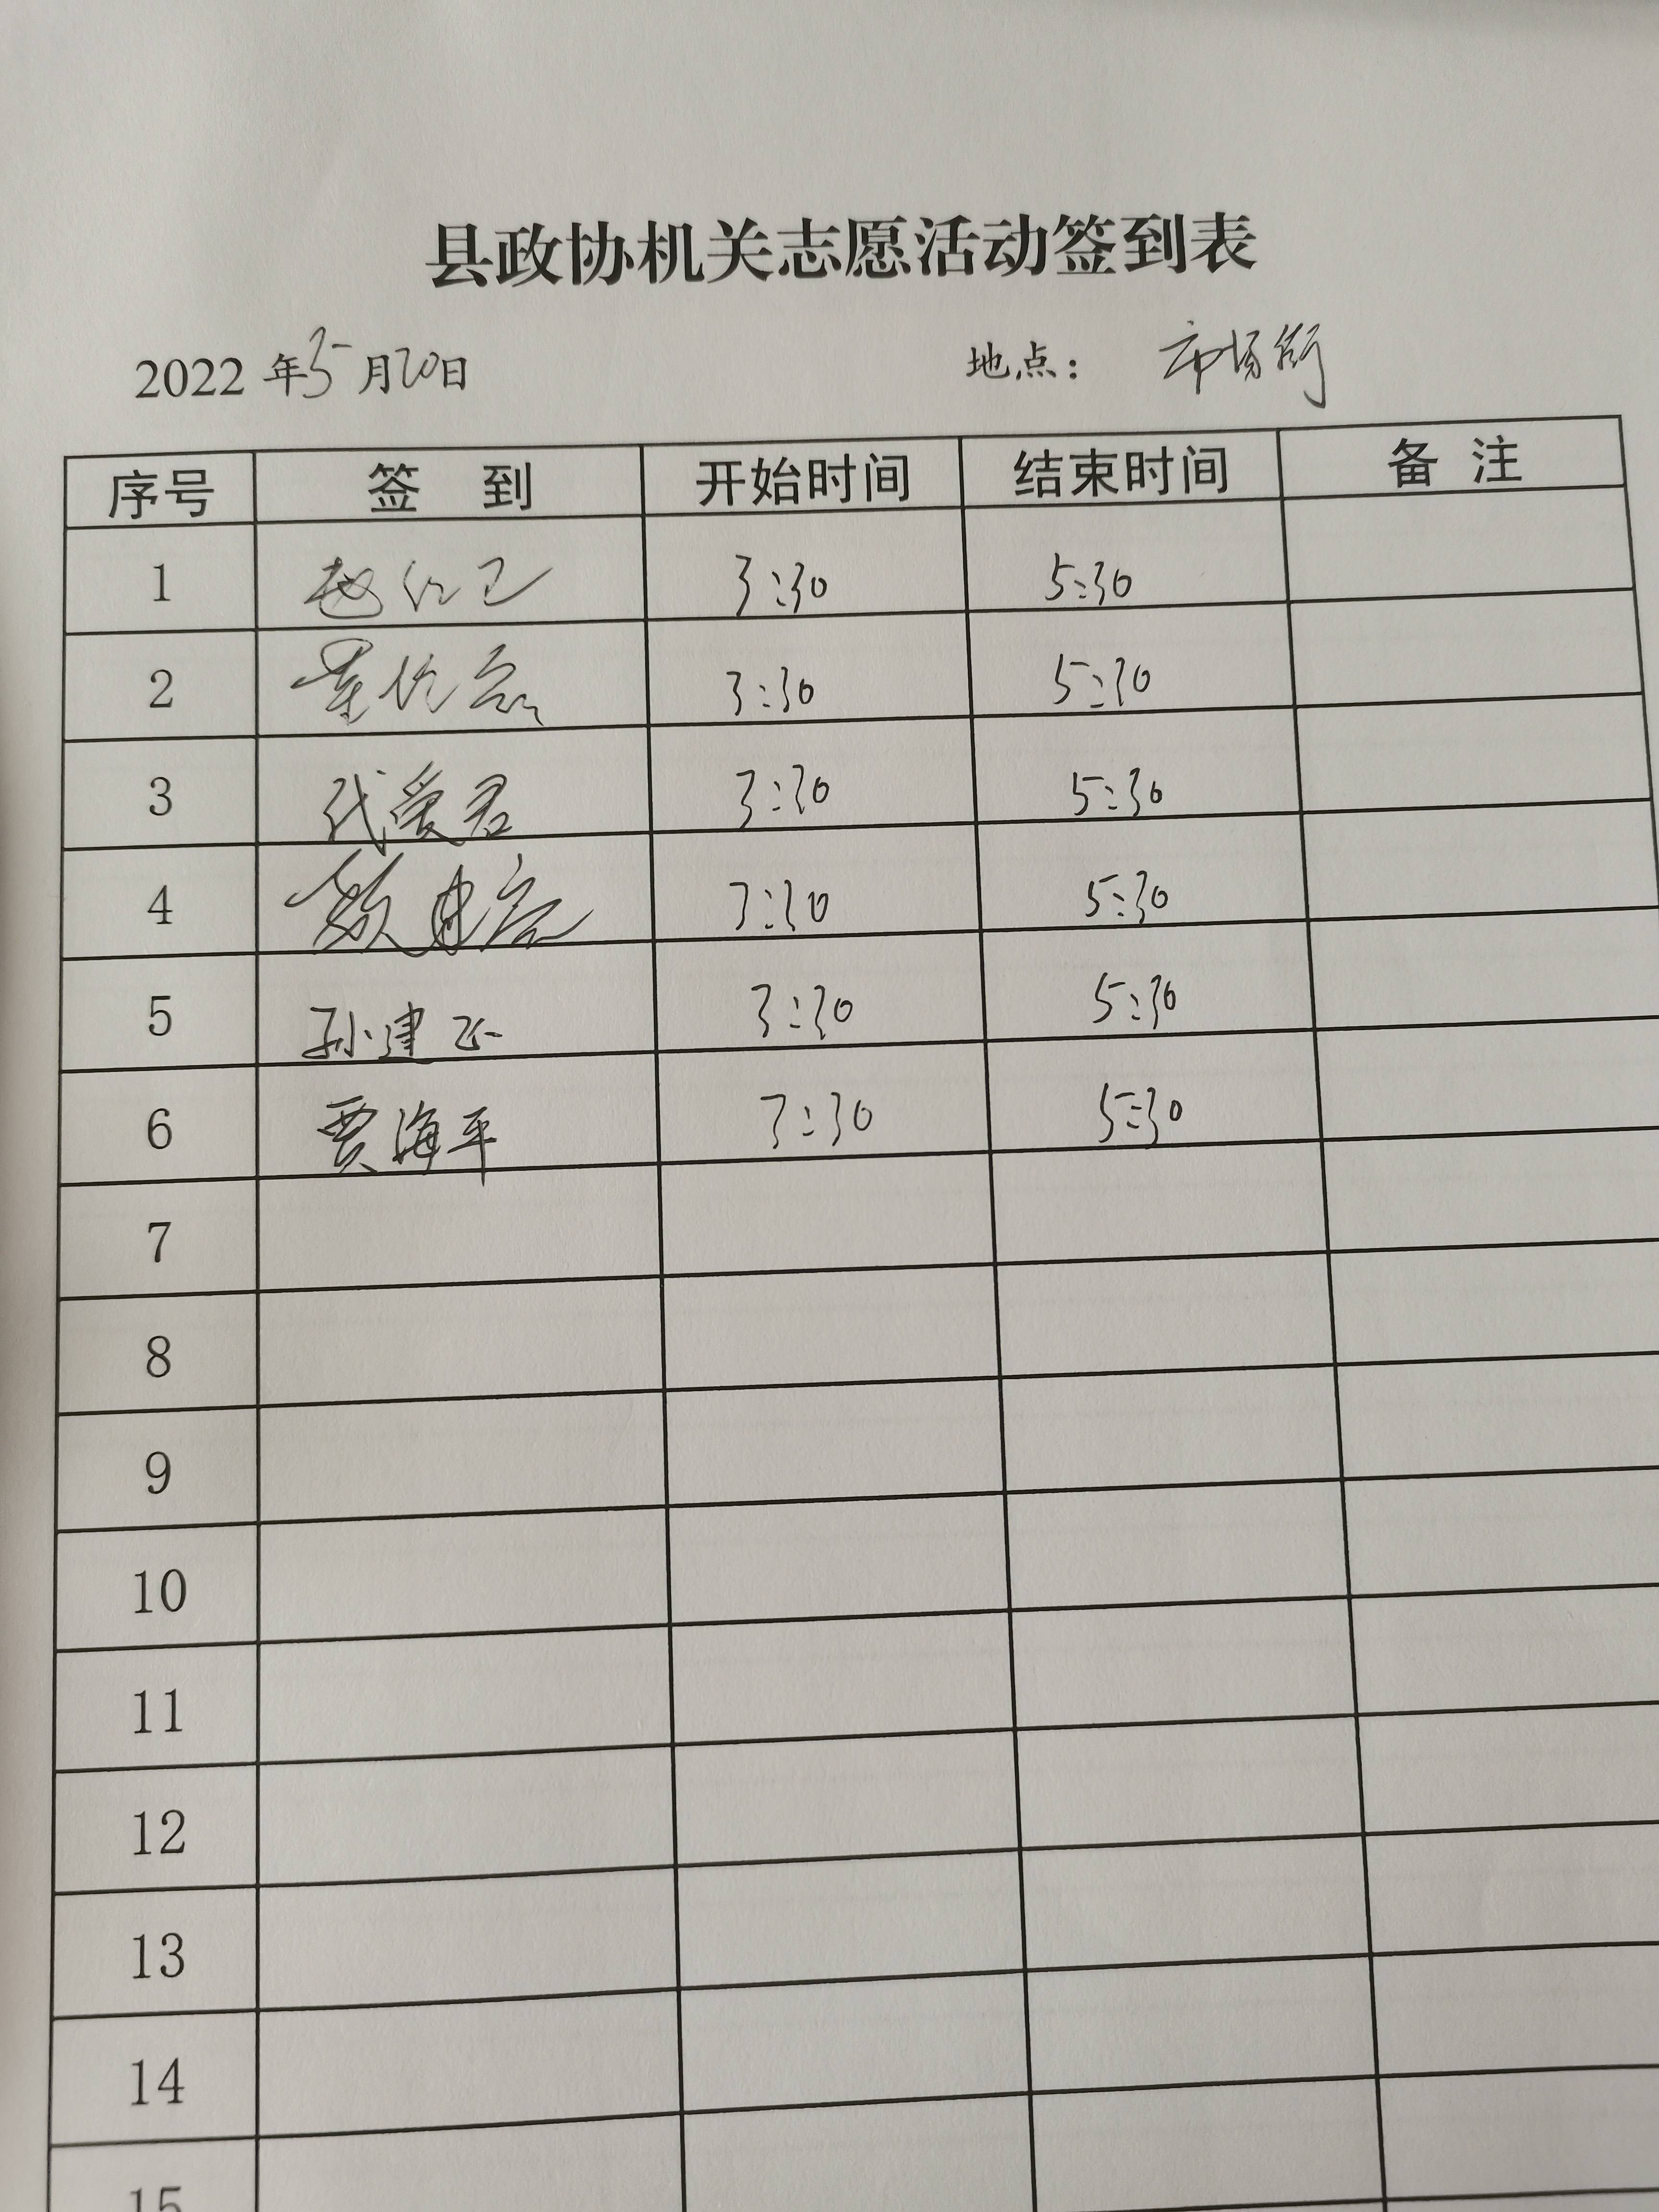 县政协机关志愿活动签到表
2022年5月20日 地点： 市场街
序号 签 到 开始时间 结束时间 备 注
1 赵红卫 3:30 5:30
2 3:30 5:30
3 代爱君 3:30 5:30
4 3:30 5:30
5 孙建正 3:30 5:30
6 贾海平 3:30 5:30
7
8
9
10
11
12
13
14
15